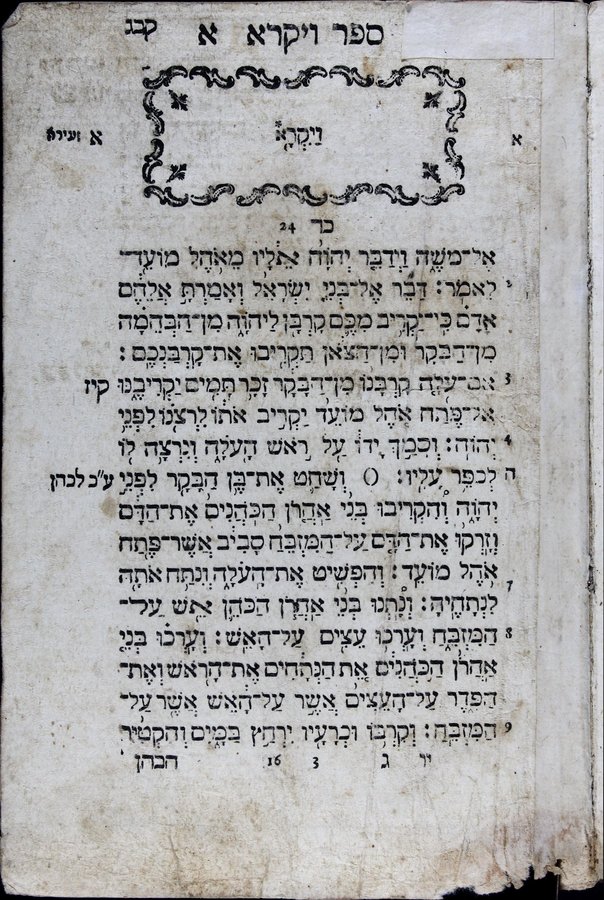 ספר ויקרא א קבג
וַיִּקְרָ֖א
א
א זעירא
כד 24
אֶל־מֹשֶׁ֑ה וַיְדַבֵּ֤ר יְהוָֹה֙ אֵלָ֔יו מֵאֹ֥הֶל מוֹעֵ֖ד־
2 לֵאמֹֽר׃ דַּבֵּ֞ר אֶל־בְּנֵ֤י יִשְׂרָאֵל֙ וְאָמַרְתָּ֣ אֲלֵהֶ֔ם
אָדָ֗ם כִּֽי־יַקְרִ֥יב מִכֶּ֛ם קָרְבָּ֖ן לַֽיהוָֹ֑ה מִן־הַבְּהֵמָ֗ה
מִן־הַבָּקָר֙ וּמִן־הַצֹּ֔אן תַּקְרִ֖יבוּ אֶת־קָרְבַּנְכֶֽם׃
3 אִם־עֹלָ֤ה קָרְבָּנוֹ֙ מִן־הַבָּקָ֔ר זָכָ֥ר תָּמִ֖ים יַקְרִיבֶ֑נּוּ קיז
אֶל־פֶּ֜תַח אֹ֤הֶל מוֹעֵד֙ יַקְרִ֣יב אֹת֔וֹ לִרְצֹנ֖וֹ לִפְנֵ֥י
4 יְהוָֹֽה׃ וְסָמַ֣ךְ יָד֔וֹ עַ֖ל רֹ֣אשׁ הָעֹלָ֑ה וְנִרְצָ֥ה ל֖וֹ
ה לְכַפֵּ֥ר עָלָֽיו׃ וְשָׁחַ֛ט אֶת־בֶּ֥ן הַבָּקָ֖ר לִפְנֵ֣י ע״כ לכהן
יְהוָֹ֑ה וְ֠הִקְרִיבוּ בְּנֵ֨י אַהֲרֹ֤ן הַכֹּֽהֲנִים֙ אֶת־הַדָּ֔ם
וְזָרְק֨וּ אֶת־הַדָּ֤ם עַל־הַמִּזְבֵּ֙חַ֙ סָבִ֔יב אֲשֶׁר־פֶּ֖תַח
אֹ֥הֶל מוֹעֵֽד׃ וְהִפְשִׁ֖יט אֶת־הָעֹלָ֑ה וְנִתַּ֥ח אֹתָ֖הּ
7 לִנְתָחֶֽיהָ׃ וְ֠נָתְנוּ בְּנֵ֨י אַהֲרֹ֧ן הַכֹּהֵ֛ן אֵ֖שׁ עַל־
8 הַמִּזְבֵּ֑חַ וְעָרְכ֥וּ עֵצִ֖ים עַל־הָאֵֽשׁ׃ וְעָרְכ֗וּ בְּנֵ֤י
אַהֲרֹן֙ הַכֹּ֣הֲנִ֔ים אֵ֚ת הַנְּתָחִ֔ים אֶת־הָרֹ֖אשׁ וְאֶת־
הַפָּ֑דֶר עַל־הָעֵצִים֙ אֲשֶׁ֣ר עַל־הָאֵ֔שׁ אֲשֶׁ֖ר עַל־
9 הַמִּזְבֵּֽחַ׃ וְקִרְבּ֥וֹ וּכְרָעָ֖יו יִרְחַ֣ץ בַּמָּ֑יִם וְהִקְטִ֨יר
יו ג 3 16 הכהן